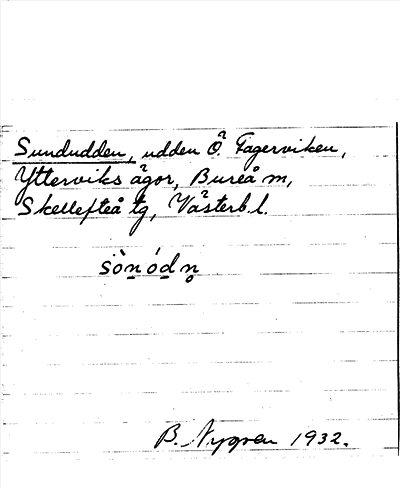 Sundudden, udden Ö. Fagerviken,
Ytterviks ägor, Bureå m,
Skellefteå tg, Västerb. l.
sòn̲ód̲n̥
B. Nygren 1932.